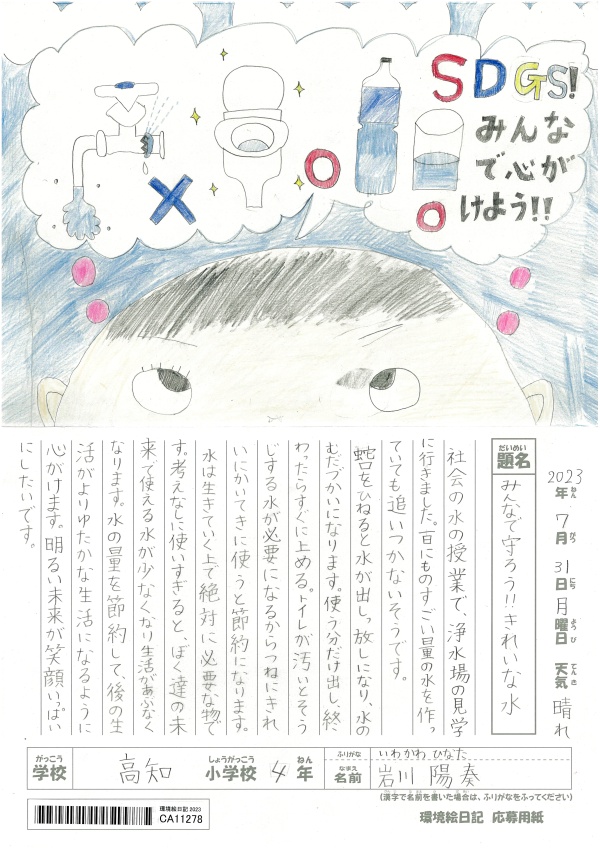 SDGS!
みんな
で心が
けよう!!
2023年 7月 31日 月曜日 天気 晴れ
ねん がつ にち ようび てんき
だいめい
題名
みんなで守ろう!!きれいな水
社会の水の授業で、浄水場の見学
に行きました。一日にものすごい量の水を作っ
ていても追いつかないそうです。
蛇口をひねると水が出しっ放しになり、水の
むだづかいになります。使う分だけ出し、終
わったらすぐに止める。トイレが汚いとそう
じする水が必要になるからつねにきれ
いにかいてきに使うと節約になります。
水は生きていく上で絶対に必要な物で
す。考えなしに使いすぎると、ぼく達の未
来で使える水が少なくなり生活があぶなく
なります。水の量を節約して、後の生
活がよりゆたかな生活になるように
心がけます。明るい未来が笑顔いっぱい
にしたいです。
がっこう しょうがっこう ねん
学校 高知 小学校 4年
ふりがな いわかわ ひなた
なまえ
名前 岩川 陽奏
(漢字で名前を書いた場合は、ふりがなをふってください)
環境絵日記 2023
CA11278
環境絵日記 応募用紙